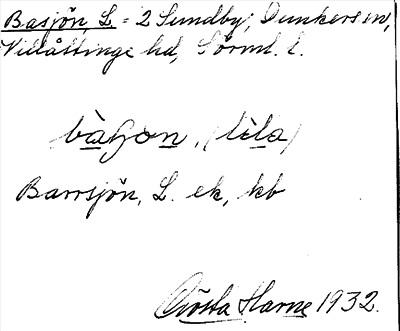 Basjön, L. = 2 Sundby, Dunkers sn,
Villåttinge hd, Sörml. l.
bàʃon, (lìla)
Barrsjön, L. ek, kb
Gösta Harne 1932.